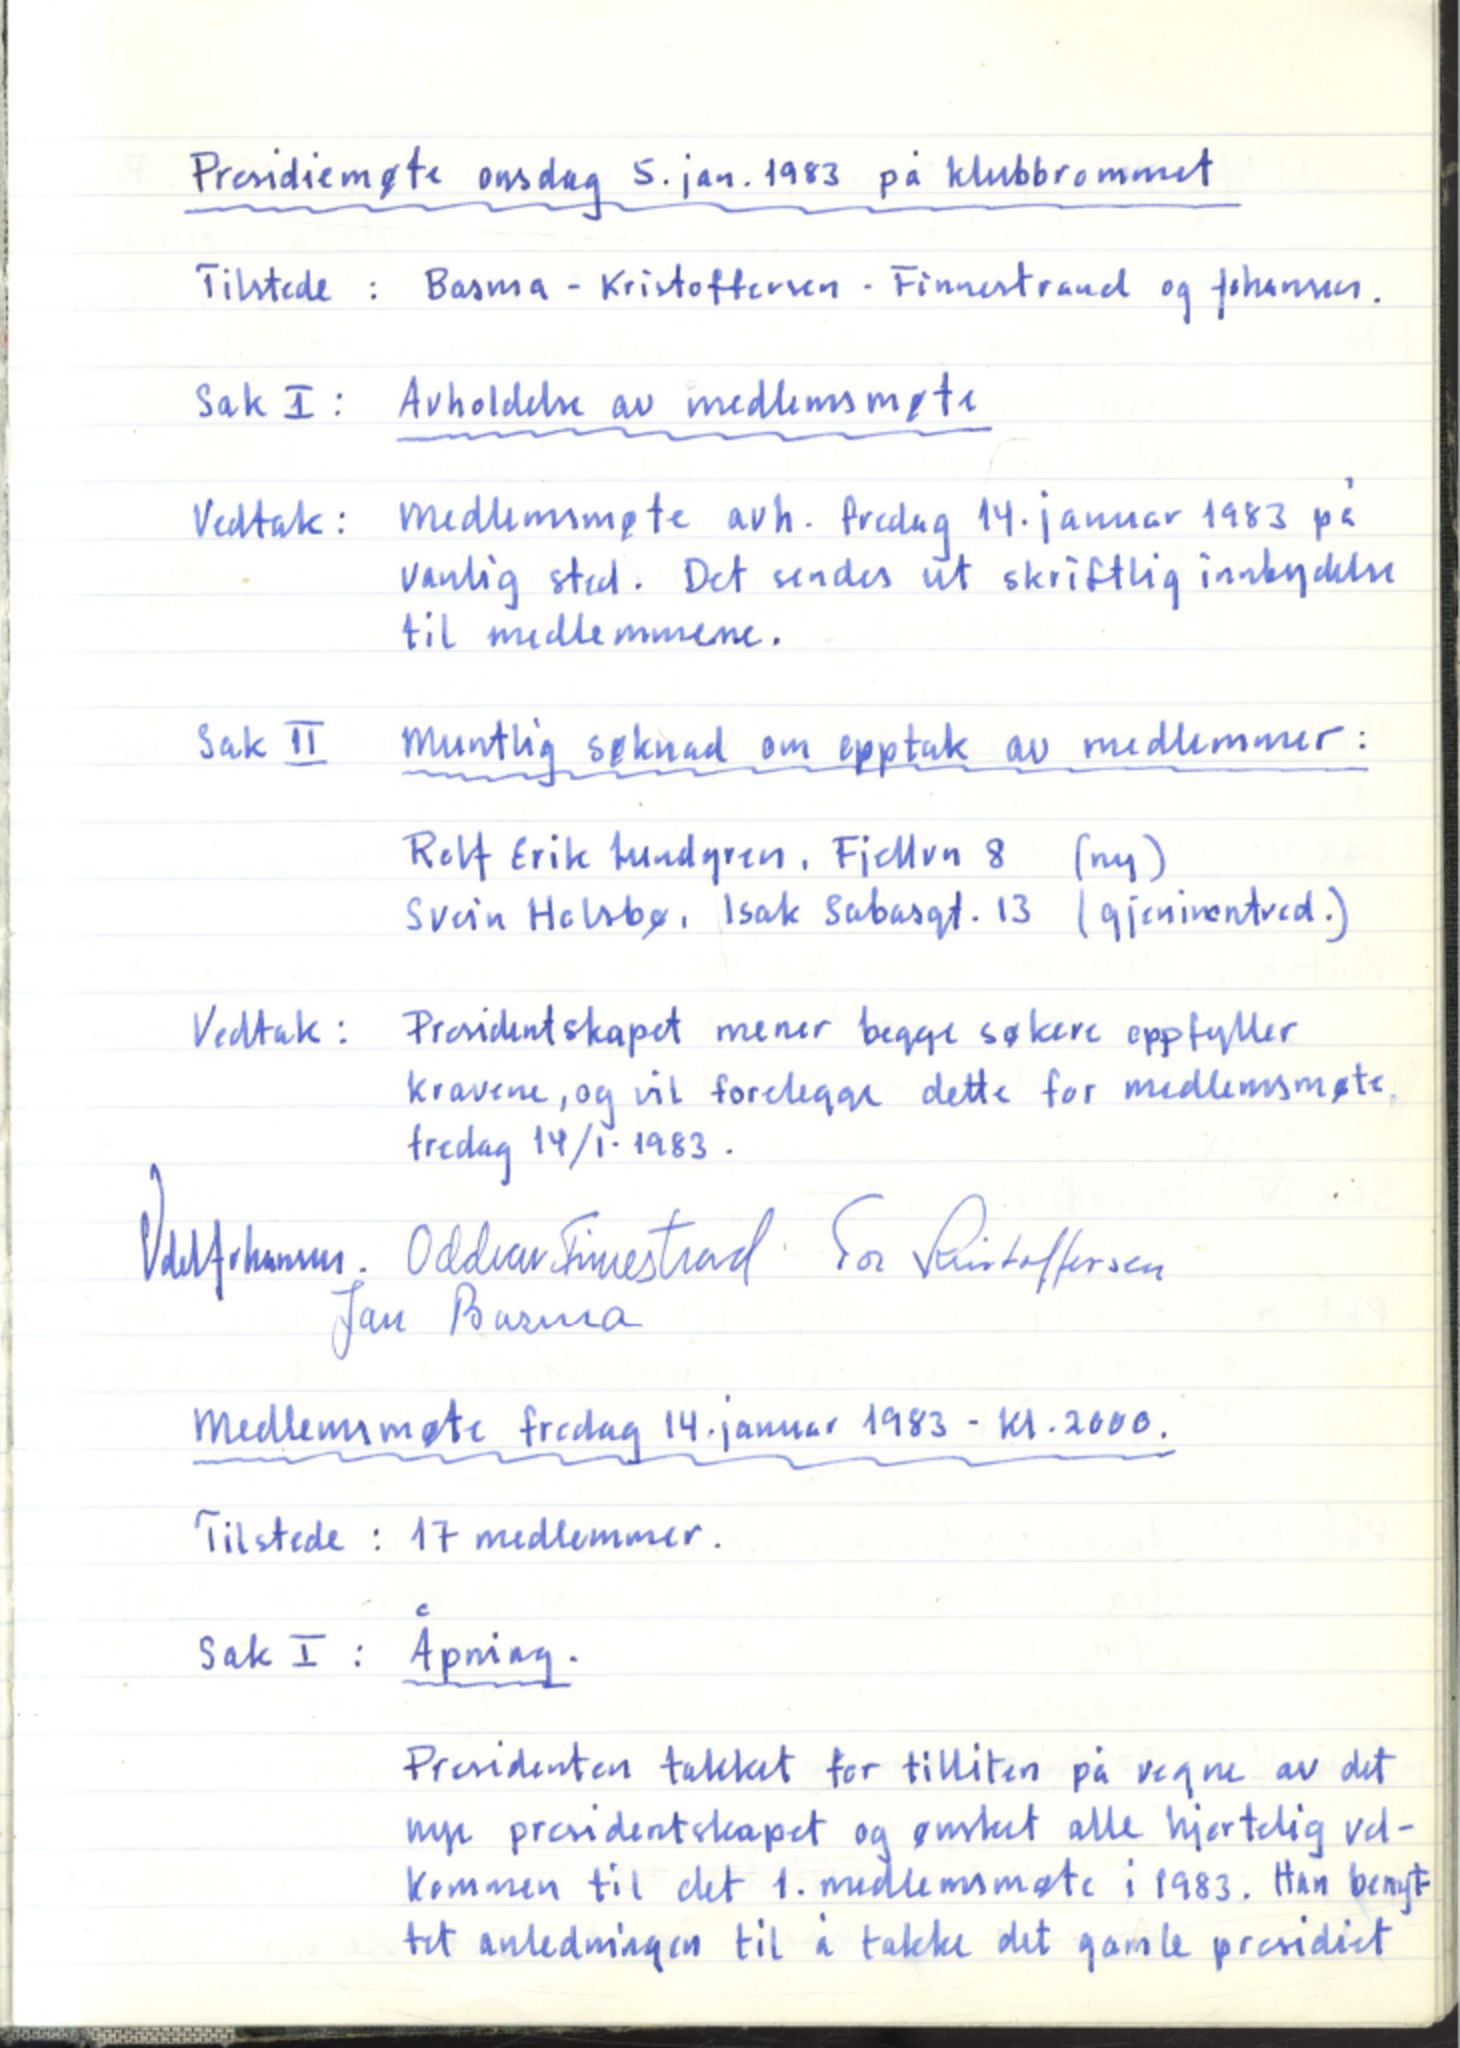 Presidiemøte onsdag 5. jan. 1983 på klubbrommet
Tilstede : Basma - Kristoffersen - Finnestrand og Johansen.
Sak I : Avholdelse av medlemsmøte
Vedtak : Medlemsmøte avh. fredag 14. januar 1983 på
vanlig sted. Det sendes ut skriftlig innbydelse
til medlemmene.
Sak II Muntlig søknad om opptak av medlemmer :
Rolf Erik Lundgren, Fjellvn 8 (ny)
Svein Holsbø, Isak Sabasgt. 13 (gjeninntred.)
Vedtak : Presidentskapet mener begge søkere oppfyller
kravene, og vil forelegge dette for medlemsmøte,
fredag 14/1. 1983.
Johansen. Oddvar Finnestrand Tor Kristoffersen
Jan Basma
Medlemsmøte fredag 14. januar 1983 - kl. 2000.
Tilstede : 17 medlemmer.
Sak I : Åpning.
Presidenten takket for tilliten på vegne av det
nye presidentskapet og ønsket alle hjertelig vel-
kommen til det 1. medlemsmøte i 1983. Han benyt-
tet anledningen til å takke det gamle presidiet